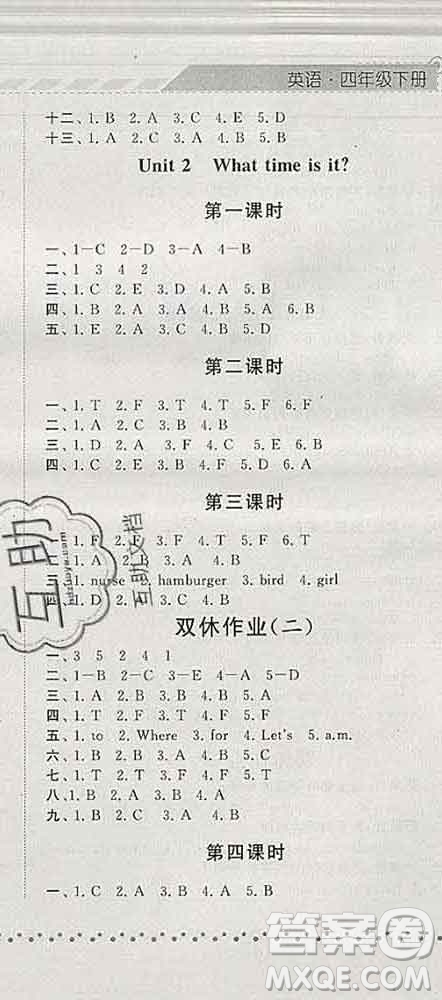 英语·四年级下册
十二、1.B 2.A 3.C 4.E 5.D
十三、1.B 2.A 3.C 4.A 5.B
Unit 2 What time is it?
第一课时
一、1-C 2-D 3-A 4-B
二、1 3 4 2
三、1.C 2.E 3.D 4.A 5.B
四、1.B 2.A 3.B 4.B 5.A 6.B
五、1.E 2.A 3.D 4.C 5.B
第二课时
一、1.T 2.F 3.T 4.T 5.F 6.F
二、1.A 2.C 3.B
三、1.D 2.A 3.E 4.B 5.C
四、1.C 2.B 3.A 4.E 5.D
第三课时
一、1.F 2.F 3.F 4.T 5.T
二、1.A 2.B 3.B 4.B 5.A
三、1.nurse 2.hamburger 3.bird 4.girl
四、1.D 2.A 3.C 4.B
双休作业(二)
一、3 5 2 4 1
二、1-B 2-C 3-E 4-A 5-D
三、1.A 2.B 3.B 4.B 5.A
四、1.T 2.F 3.F 4.T 5.T
五、1.to 2.Where 3.for 4.Let's 5.a.m.
六、1.B 2.C 3.A 4.C 5.C
七、1.T 2.T 3.F 4.T 5.F
八、1.B 2.C 3.A
九、1.B 2.B 3.A 4.B
第四课时
一、1.C 2.A 3.B 4.A 5.C
互助
互助文档
答案圈
MXQE.COM